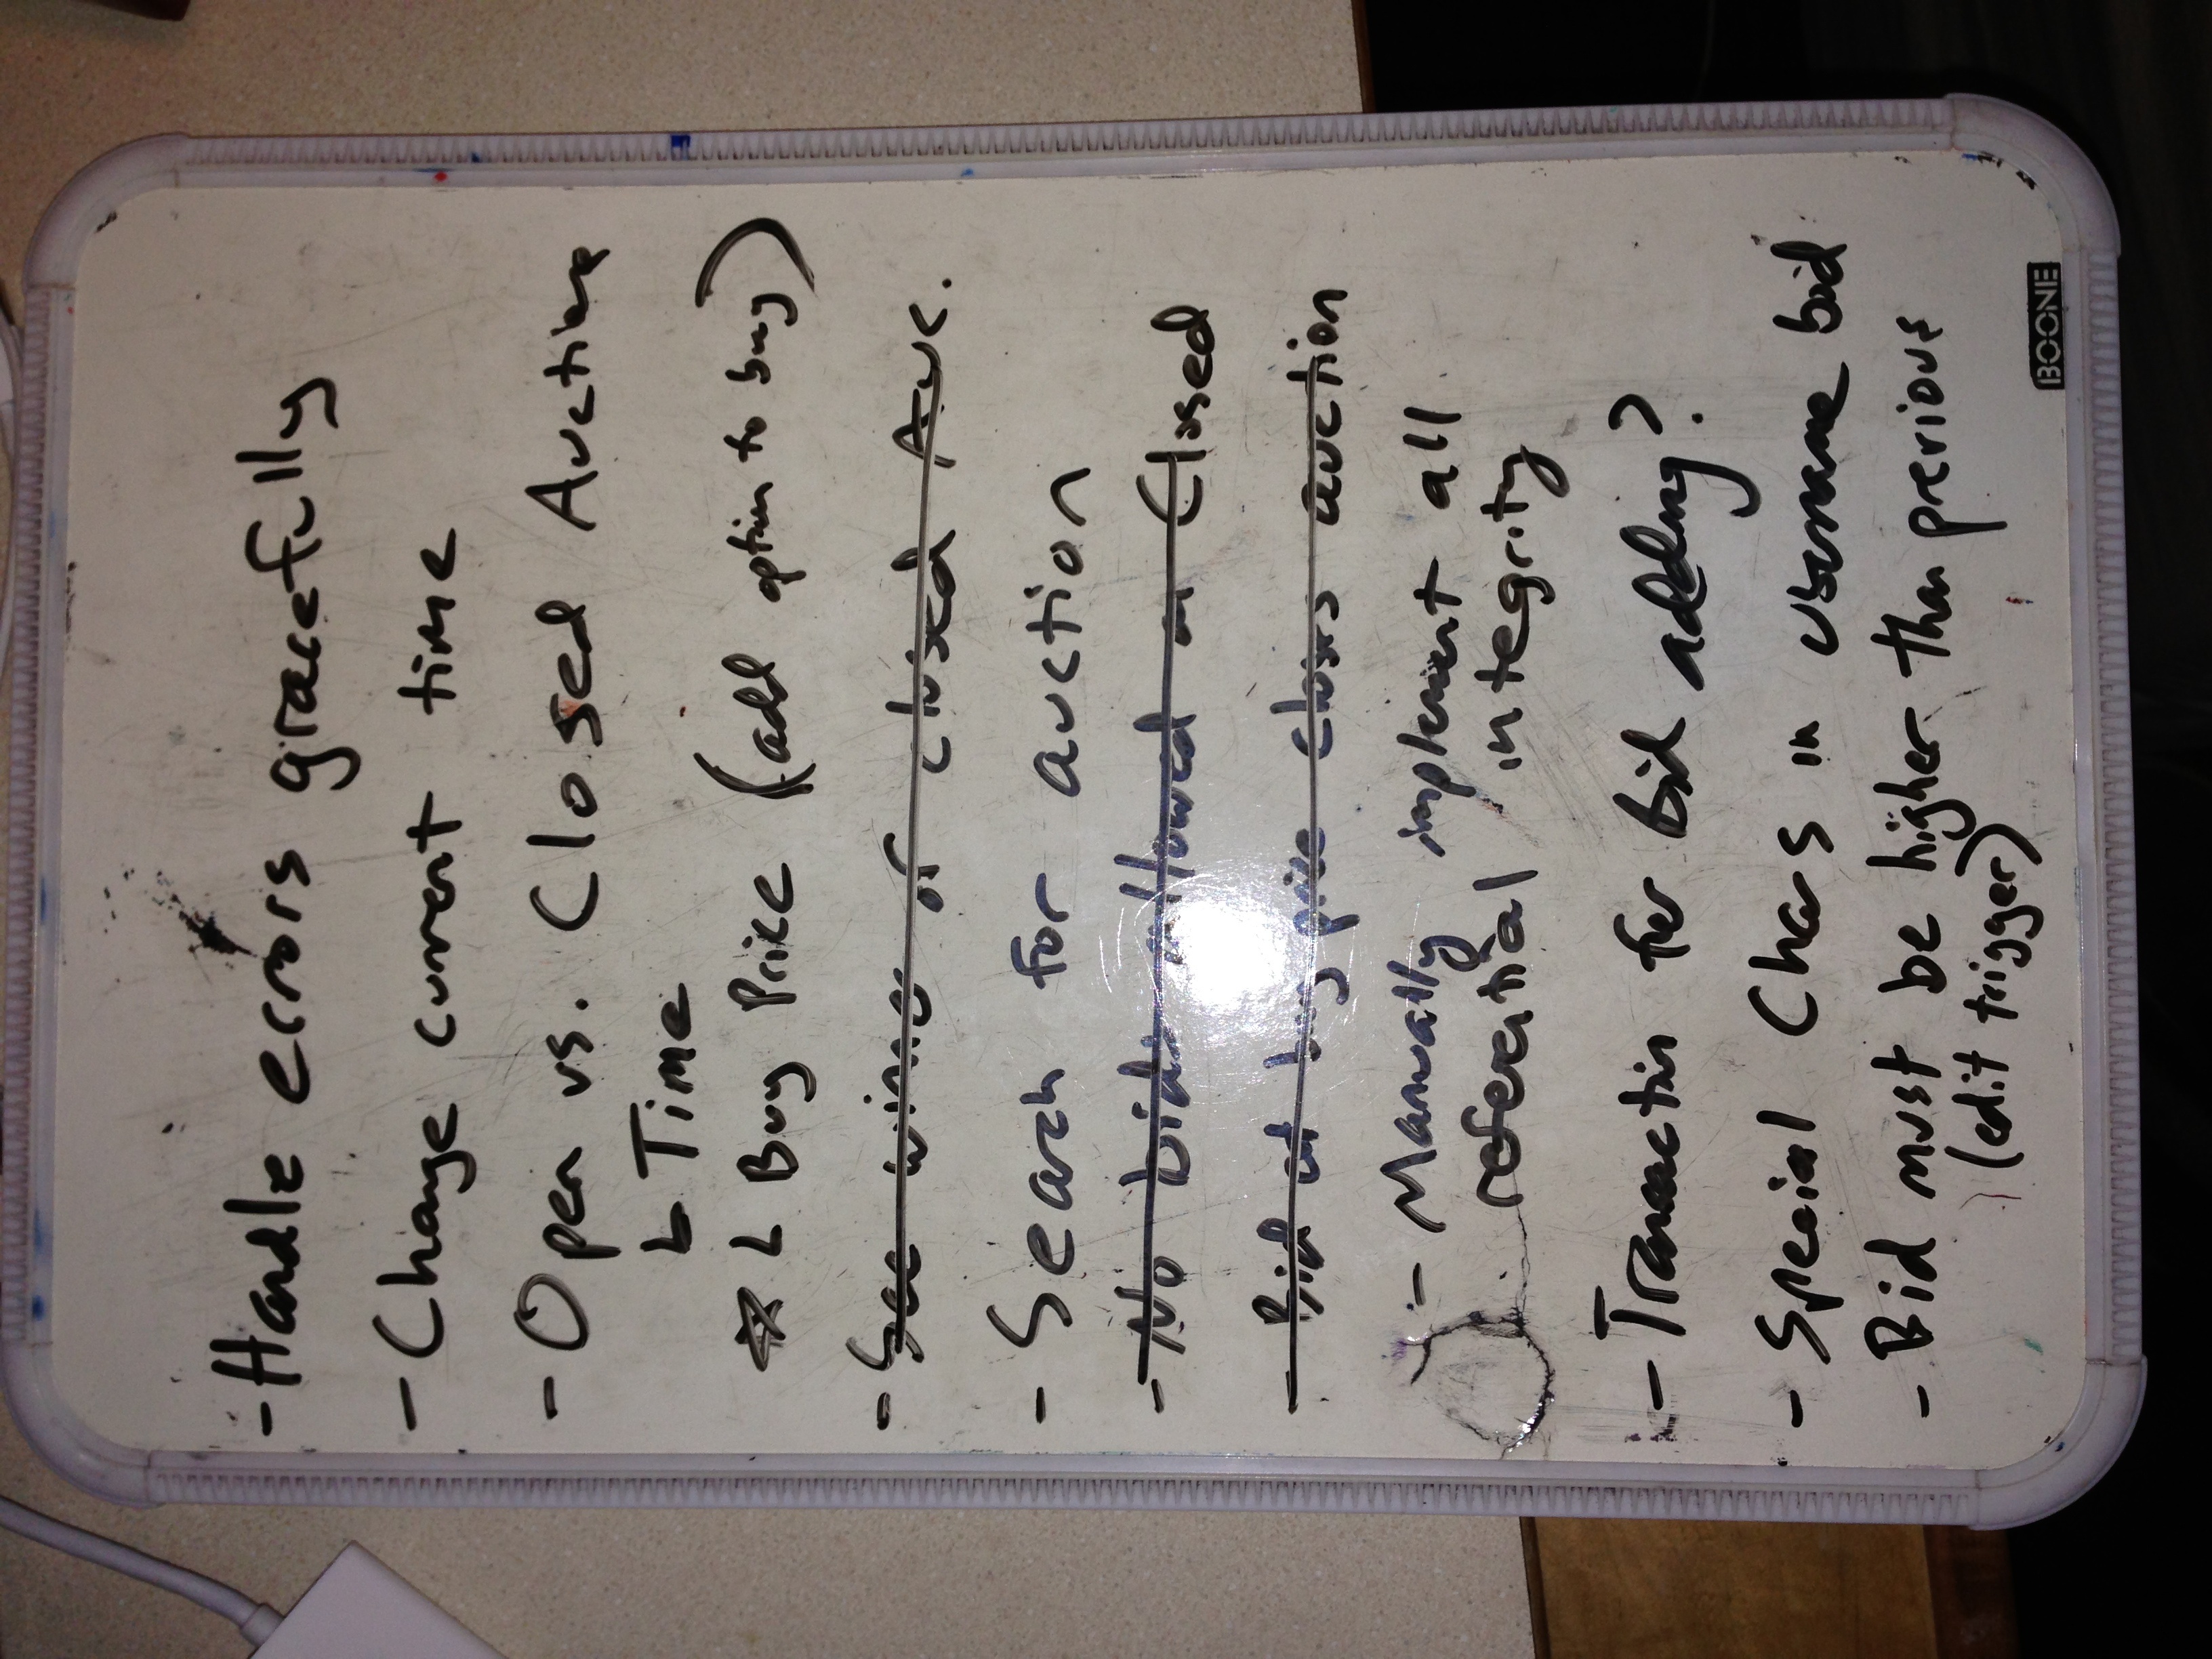 - Handle errors gracefully
- Change current time
- Open vs. Closed Auctions
↳ Time
☆ ↳ Buy Price (add option to buy)
- See winner of closed Auc.
- Search for auction
- No bids allowed on Closed
- Bid at buy price closes auction
- Manually implement all
referential integrity
- Transaction for bid adding?
- Special Chars in username bid
- Bid must be higher than previous
(edit trigger)
BOONE